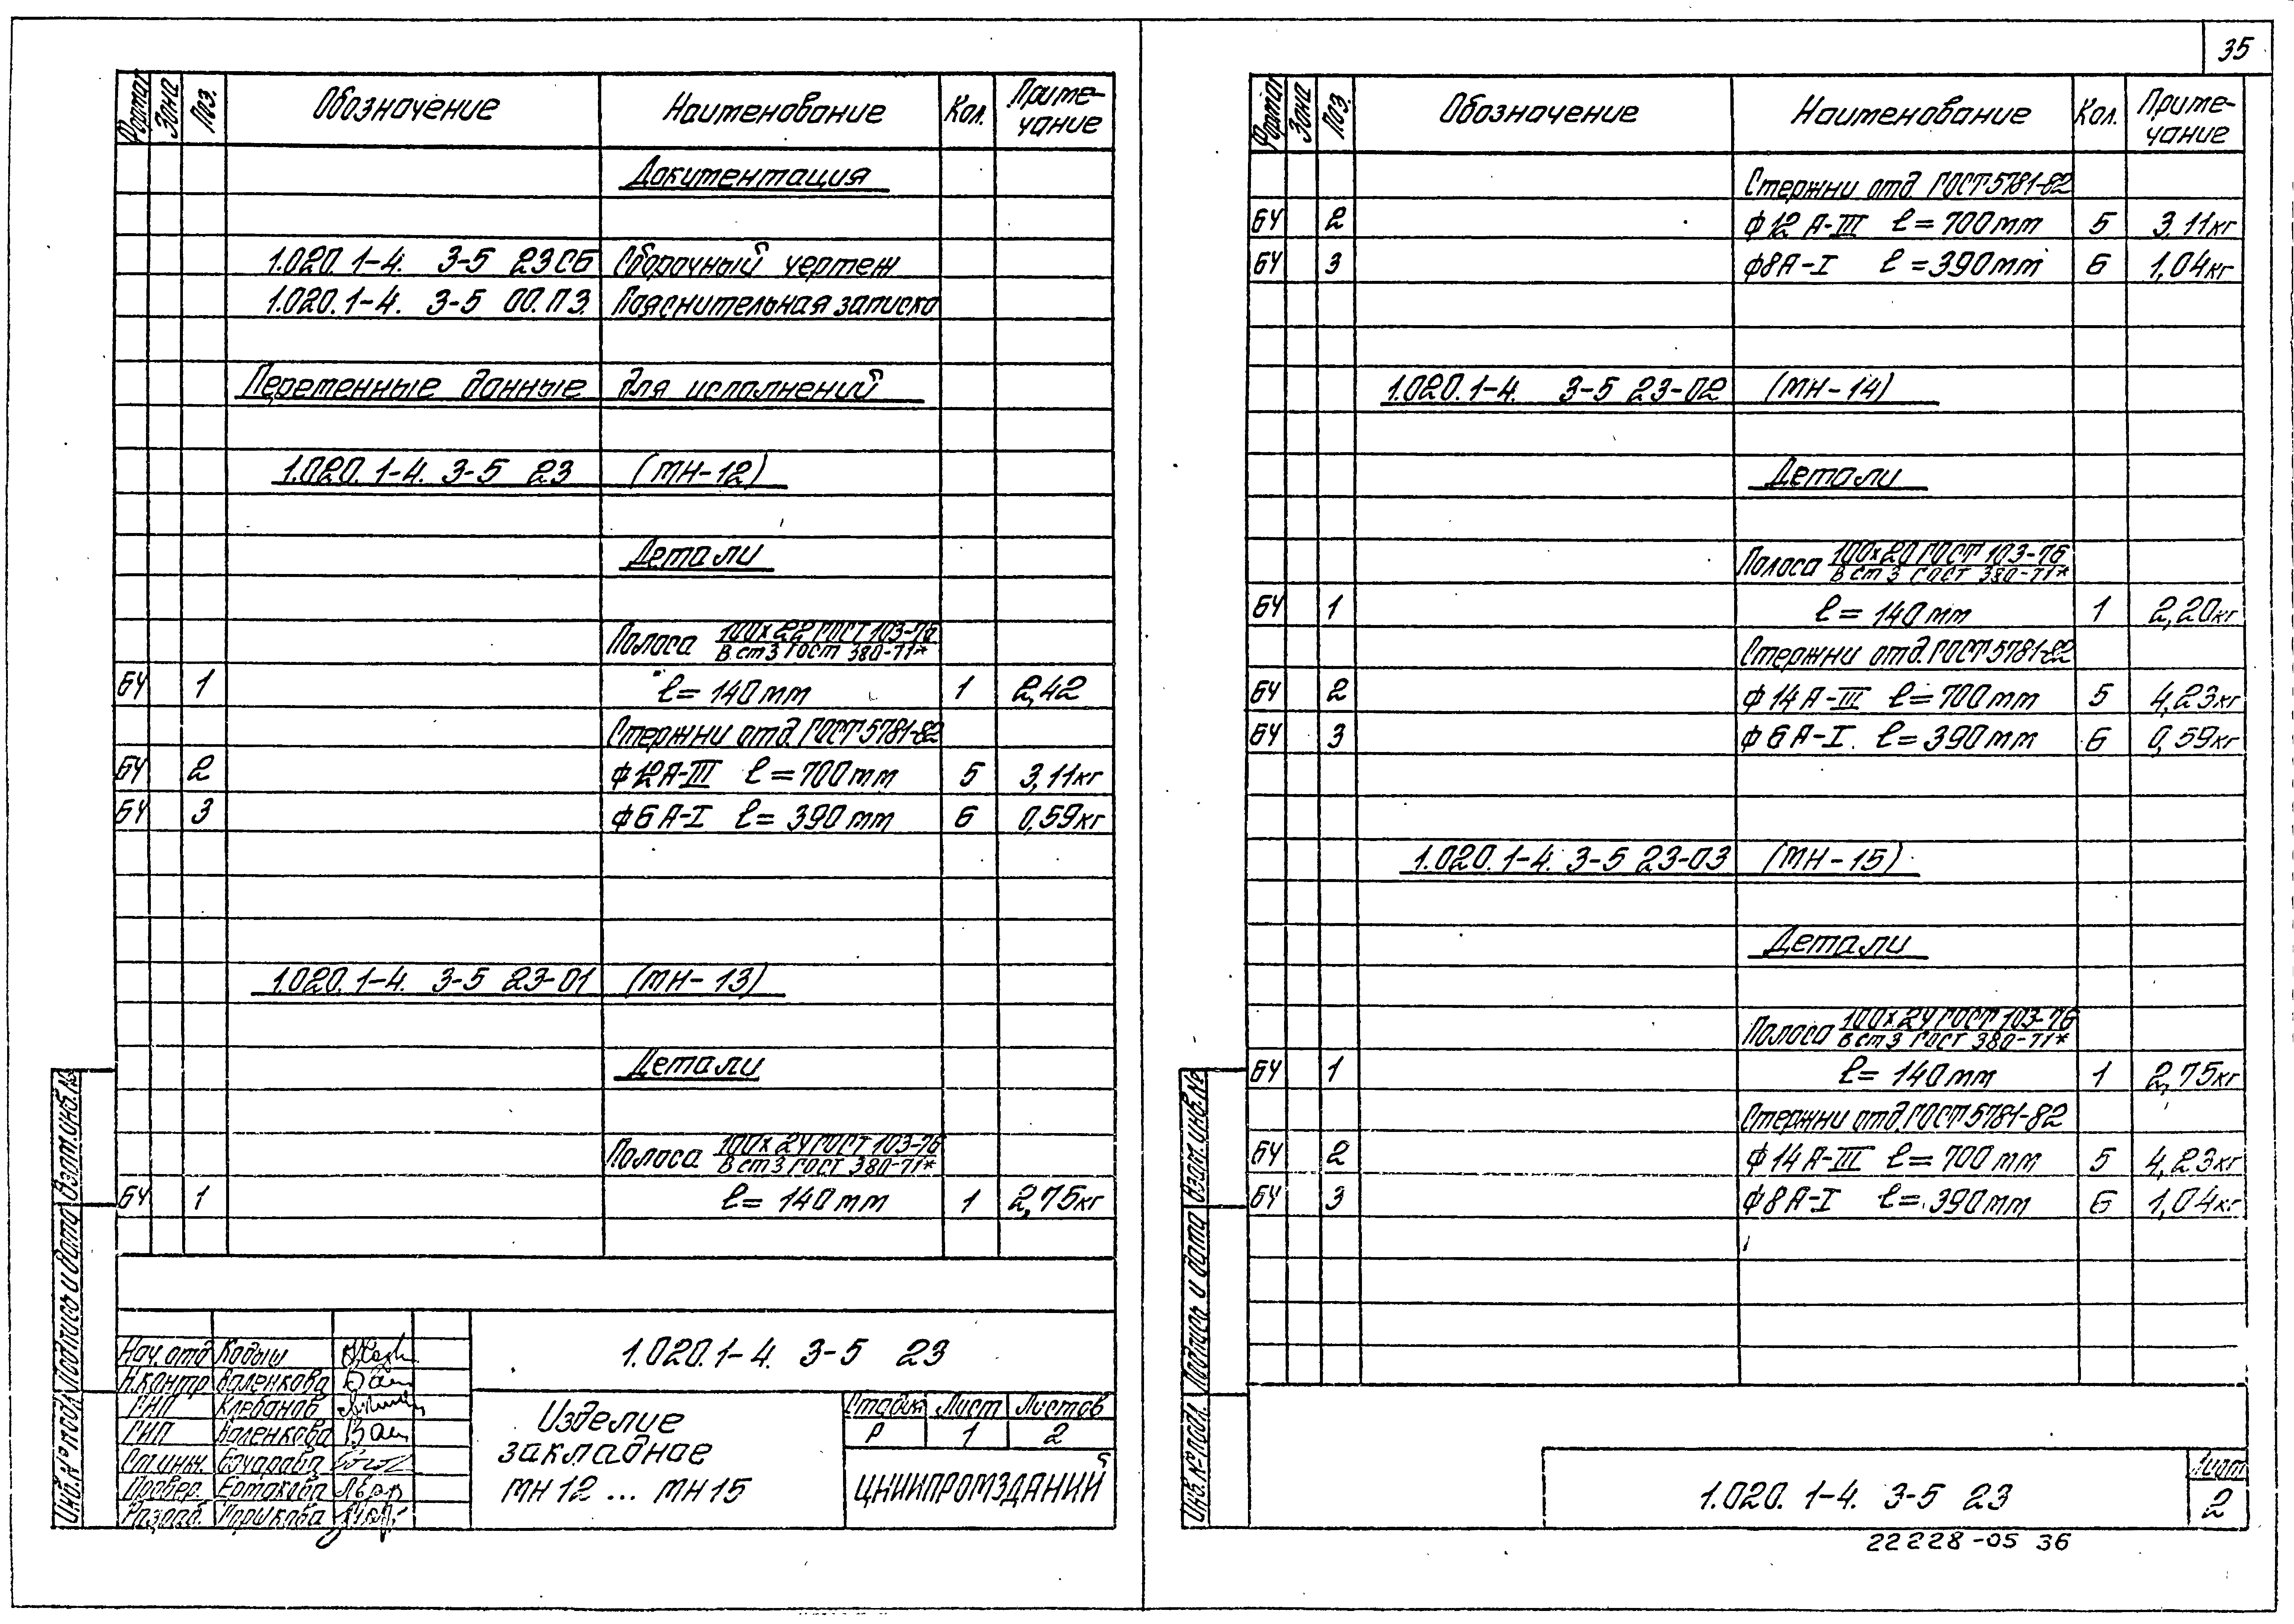 35
Формат Зона Поз. Обозначение Наименование Кол. Приме-чание
Документация
1.020.1-4. 3-5 23СБ Сборочный чертеж
1.020.1-4. 3-5 00.ПЗ. Пояснительная записка
Переменные данные для исполнений
1.020.1-4. 3-5 23 (МН-12)
Детали
Полоса 100×22 ГОСТ 103-76
В ст3 ГОСТ 380-71*
БЧ 1 ℓ= 140мм 1 2,42
Стержни отд. ГОСТ 5781-82
БЧ 2 ф12А-III ℓ=700мм 5 3,11кг
БЧ 3 ф6А-I ℓ= 390мм 6 0,59кг
1.020.1-4. 3-5 23-01 (МН-13)
Детали
Полоса 100×24 ГОСТ 103-76
В ст3 ГОСТ 380-71*
БЧ 1 ℓ= 140мм 1 2,75кг
Инв.№ подл. Подпись и дата Взам.инв.№
Нач.отд Кодыш
Н.контр Валенкова
ГИП Клебанов
ГИП Валенкова
Ст.инж.
Провер. Ермакова
Разраб. Горшкова
1.020.1-4. 3-5 23
Изделие
закладное
МН12 ... МН15
Стадия Лист Листов
Р 1 2
ЦНИИПРОМЗДАНИЙ
Формат Зона Поз. Обозначение Наименование Кол. Приме-чание
Стержни отд. ГОСТ 5781-82
БЧ 2 ф12А-III ℓ=700мм 5 3,11кг
БЧ 3 ф8А-I ℓ=390мм 6 1,04кг
1.020.1-4. 3-5 23-02 (МН-14)
Детали
Полоса 100×20 ГОСТ 103-76
В ст3 ГОСТ 380-71*
БЧ 1 ℓ= 140мм 1 2,20кг
Стержни отд. ГОСТ 5781-82
БЧ 2 ф14А-III ℓ=700мм 5 4,23кг
БЧ 3 ф6А-I. ℓ=390мм 6 0,59кг
1.020.1-4. 3-5 23-03 (МН-15)
Детали
Полоса 100×24 ГОСТ 103-76
В ст3 ГОСТ 380-71*
БЧ 1 ℓ= 140мм 1 2,75кг
Стержни отд. ГОСТ 5781-82
БЧ 2 ф14А-III ℓ=700мм 5 4,23кг
БЧ 3 ф8А-I ℓ=390мм 6 1,04кг
Инв.№ подл. Подпись и дата Взам.инв.№
1.020.1-4. 3-5 23
Лист
2
22228-05 36